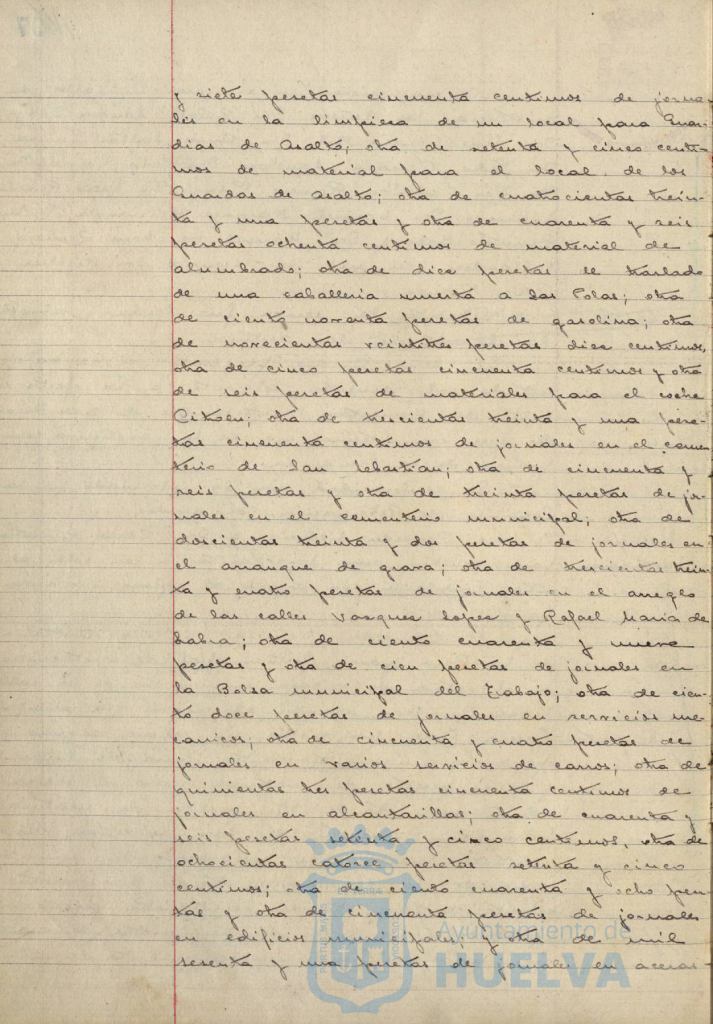 y siete pesetas cincuenta centimos de jorna-
les en la limpieza de un local para Guar-
dias de Asalto; otra de setenta y cinco centi-
mos de material para el local de los
Guardias de asalto; otra de cuatrocientas trein-
ta y una pesetas y otra de cuarenta y seis
pesetas ochenta centimos de material de
alumbrado; otra de diez pesetas el traslado
de una caballeria muerta a las Colas; otra
de ciento noventa pesetas de gasolina; otra
de novecientas veintitres pesetas diez centimos,
otra de cinco pesetas cincuenta centimos y otra
de seis pesetas de materiales para el coche
Citroen; otra de trescientas treinta y una pese-
tas cincuenta centimos de jornales en el cemen
terio de San Sebastian; otra de cincuenta y
seis pesetas y otra de treinta pesetas de jor-
nales en el cementerio municipal; otra de
doscientas treinta y dos pesetas de jornales en
el arranque de grava; otra de trescientas trein-
ta y cuatro pesetas de jornales en el arreglo
de las calles Vazquez Lopez y Rafael Maria de
Labra; otra de ciento cuarenta y nueve
pesetas y otra de cien pesetas de jornales en
la Bolsa municipal del Trabajo; otra de cien-
to doce pesetas de jornales en servicios me-
canicos; otra de cincuenta y cuatro pesetas de
jornales en varios servicios de carros; otra de
quinientas tres pesetas cincuenta centimos de
jornales en alcantarillas; otra de cuarenta y
seis pesetas setenta y cinco centimos, otra de
ochocientas catorce pesetas setenta y cinco
centimos; otra de ciento cuarenta y ocho pese-
tas y otra de cincuenta pesetas de jornales
en edificios municipales; y otra de mil
sesenta y una pesetas de jornales en aceras-
Ayuntamiento de
HUELVA